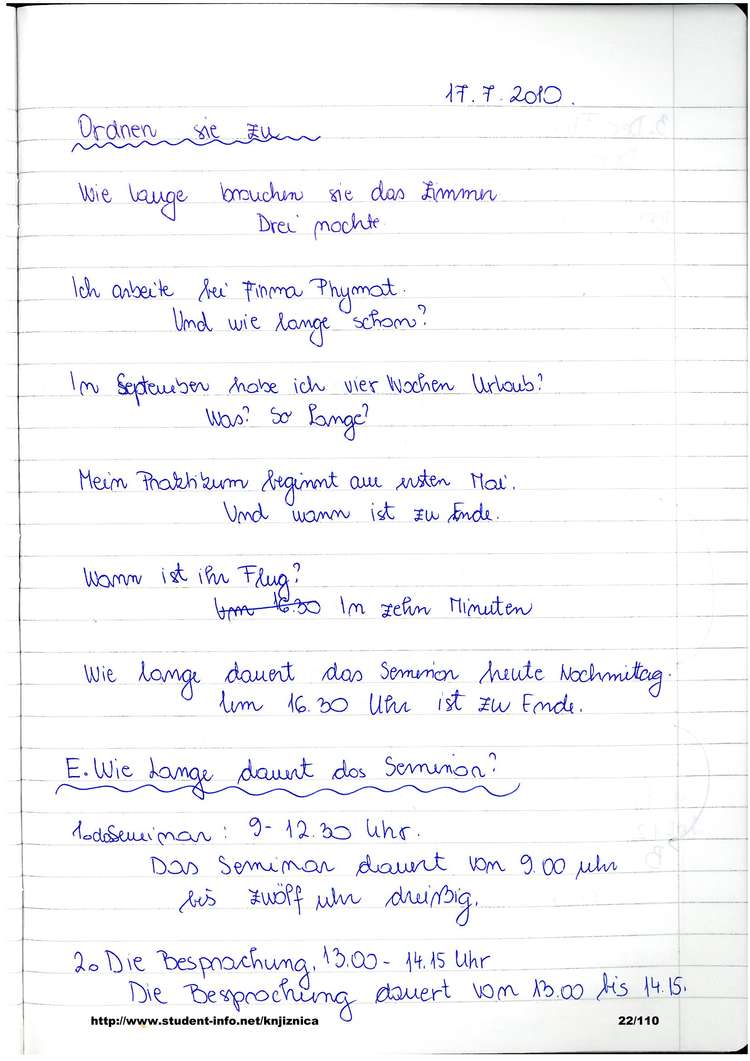 17.7.2010.
Ordnen sie zu
Wie lange brauchen sie das Zimmer
Drei nachte
Ich arbeite bei Firma Phymat.
Und wie lange schon?
Im September habe ich vier Wochen Urlaub?
Was? So lange?
Mein Praktikum beginnt am ersten Mai.
Und wann ist zu Ende.
Wann ist ihr Flug?
Um 16.30 In zehn Minuten
Wie lange dauert das Seminar heute Nachmittag.
Um 16.30 Uhr ist zu Ende.
E. Wie lange dauert das Seminar?
1. das Seminar: 9-12.30 Uhr.
Das Seminar dauert von 9.00 uhr
bis zwölf uhr dreißig.
2. Die Besprachung, 13.00 - 14.15 Uhr
Die Besprachung dauert von 13.00 bis 14.15.
http://www.student-info.net/knjiznica
22/110